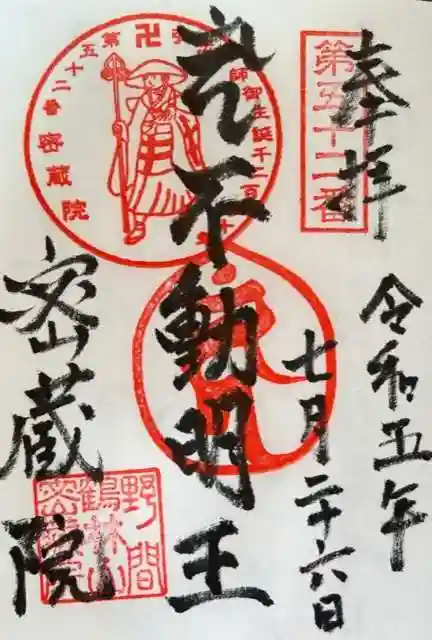 奉拝
第五十二番
令和五年
七月二十六日
不動明王
密蔵院
第五十二番 密蔵院
師御生誕千二百
野間
鶴林山
密蔵院